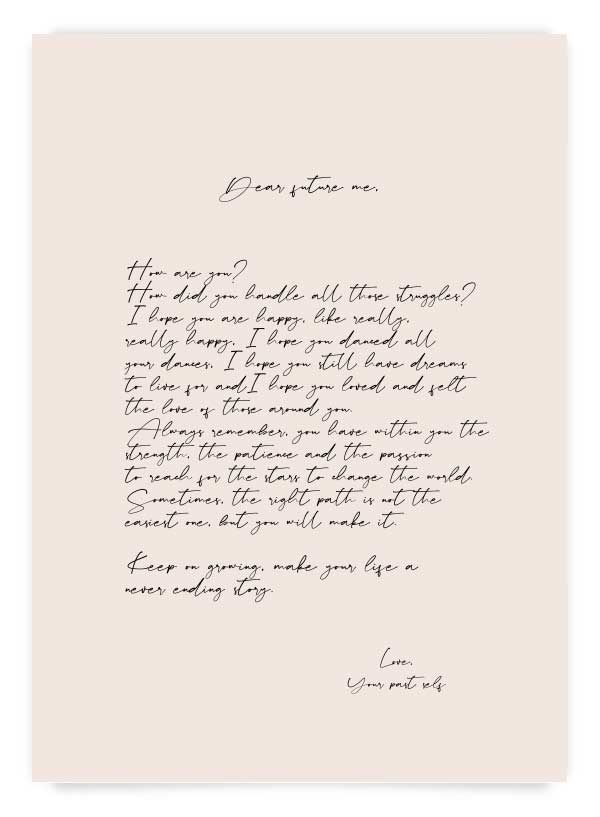 Dear future me,
How are you?
How did you handle all those struggles?
I hope you are happy, like really,
really happy, I hope you danced all
your dances, I hope you still have dreams
to live for and I hope you loved and felt
the love of those around you.
Always remember, you have within you the
strength, the patience and the passion
to reach for the stars to change the world.
Sometimes, the right path is not the
easiest one, but you will make it.
Keep on growing, make your life a
never ending story.
Love,
Your past self